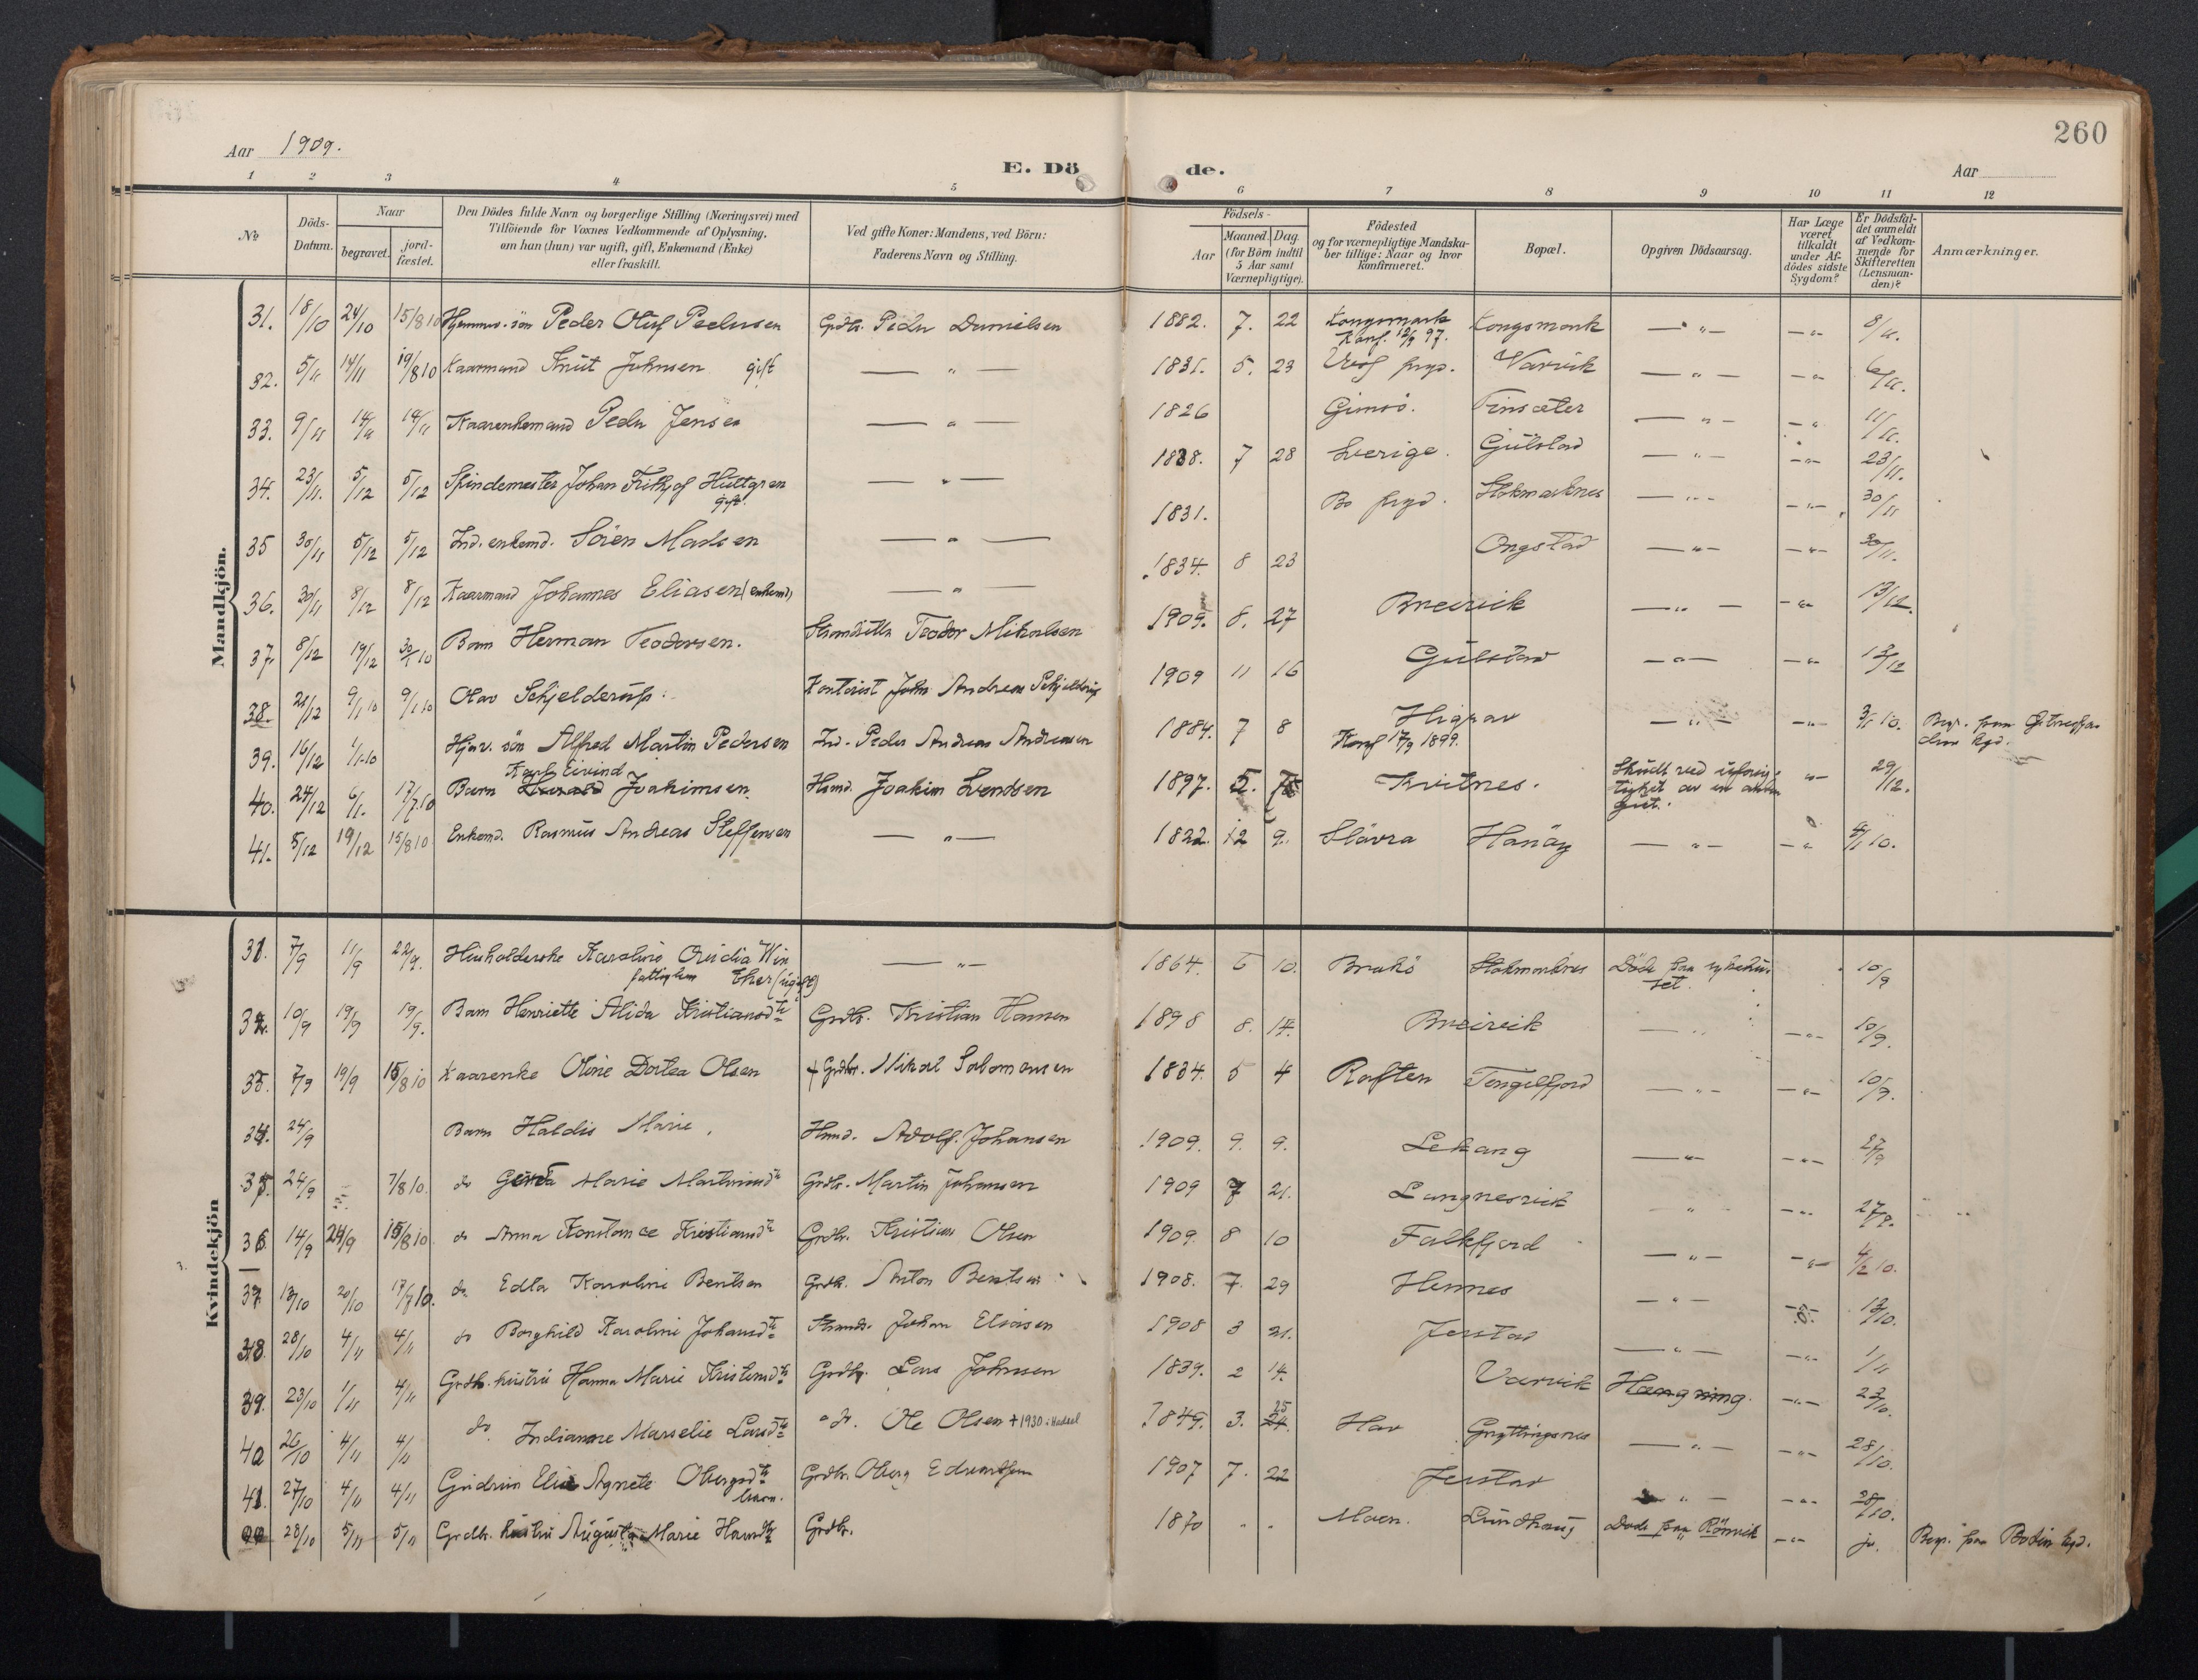 260
Aar 1909.
E. Dö de.
Aar
1 2 3 4 5 6 7 8 9 10 11 12
№
Döds-Datum.
Naar
begravet.
jord-fæstet.
Den Dödes fulde Navn og borgerlige Stilling (Næringsvei) med
Tilföiende for Voxnes Vedkommende af Oplysning,
om han (hun) var ugift, gift, Enkemand (Enke)
eller fraskilt.
Ved gifte Koner: Mandens, ved Börn:
Faderens Navn og Stilling.
Födsels-
Aar
Maaned. Dag.
(for Börn indtil
5 Aar samt
Værnepligtige).
Födested
og for værnepligtige Mandska-
ber tillige: Naar og hvor
konfirmeret.
Bopæl.
Opgiven Dödsaarsag.
Har Læge
været
tilkaldt
under Af-
dödes sidste
Sygdom?
Er Dödsfal-
det anmeldt
af Vedkom-
mende for
Skifteretten
(Lensman-
den)?
Anmærkninger.
Mandkjön.
31. 18/10 24/10 15/8 10 Hjemmev. sön Peder Oluf Pedersen Grdbr. Peder Danielsen 1882. 7. 22 Kongsmark Kongsmark — " — — " — 8/11.
Konf. 12/9 97.
32. 5/11 14/11 19/8 10 Kaarmand Knut Johnsen gift — " — 1831. 5. 23 prgd. Varvik — " — — " 6/11.
33. 9/11 14/11 14/11 Kaarenkemand Peder Jensen — " — 1826 Gimsö. Finsæter — " — — " 11/11.
34. 23/11. 5/12 5/12 Spindemester Johan Frithjof Hultgren — " — 1838. 7 28 Sverige. Gulstad — " — — " — 23/11.
gift.
35 30/11 5/12 5/12 Ind. enkemd. Sören Madsen — " — 1831. Bö prgd. Stokmarknes — " — — " — 30/11
36. 30/11 8/12 8/12 Kaarmand Johannes Eliasen (enkemd) — " — 1834. 8 23 Ongstad — " — — " — 30/11.
37. 8/12 19/12 30/1 10 Barn Herman Teodorsen. Teodor Mikalsen 1909. 8. 27 Breivik — " — — " — 13/12.
38. 21/12 9/1 10 9/1 10 Olav Schjelderup. Kontorist John Andreas Schjelderup 1909 11 16 Gulstad — " — — " 13/12
39. 16/12 1/1-10 Hjev. sön Alfred Martin Pedersen Ind. Peder Andreas Andreasen 1884. 7 8 Higrav — " — — " — 3/1 10. Begr. paa
Konf 17/9 1899.
Karl Eivind
40. 24/12 6/1. 17/7.10 Barn Joakimsen. Hsmd. Joakim Svendsen 1897. 5. Kvitnes. Skudt ved uforsig- " — 29/12.
tighet av en anden
gut.
41. 5/12 19/12 15/8 10 Enkemd. Rasmus Andreas Steffensen — " — 1822. 12 9. Slåvra Hanöy — " — — " 4/1 10.
Kvindekjön
31. 7/9 11/9 22/9. Husholderske Karoline Ovidia Win — " — 1864. 6 10. Brukö Stokmarknes Döde paa sykehu- 10/9
fattiglem ther (ugift) set.
32. 10/9 19/9 19/9. Barn Henriette Alida Kristiansdtr Grdbr. Kristian Hansen 1898 8. 14. Breivik — " — — " — 10/9.
33. 7/9 19/9 15/8 10 Kaarenke Oline Dortea Olsen + Grdbr. Nikol Salomonsen 1834. 5 4 Raften Tengelfjord — " — — " — 10/9.
34. 24/9 Barn Haldis Marie. Hsmd. Adolf Johansen 1909. 9. 9. Lekang — " — — " — 27/9
35. 24/9 — 7/8 10. do Gerda Marie Martinsdtr Grdbr. Martin Johansen 1909 7 21. Langnesvik " — — " — 27/9.
36. 14/9 24/9 15/8 10. do Anna Konstance Kristiansdtr Grdbr. Kristian Olsen 1909. 8 10 Falkfjord — " — — " — 4/2 10.
37. 13/10 20/10 17/7 10. do Edla Karoline Bentsen Grdbr. Anton Bentsen 1908. 7. 29 Hennes — " — — " — 13/10.
38. 28/10 4/11 4/11 do Borghild Karoline Johansdtr Johan Eliasen 1908 3 21. Jerstad — " — — " — 1/11
39. 23/10 1/11 4/11 Grdbr. hustru Hanna Marie Kristensdtr Grdbr. Lars Johnsen 1839. 2 14. Varvik Hængning. — " — 23/10.
40 26/10 4/11 4/11 do. Indianne Marselie Larsdtr do. Ole Olsen + 1930 i Hadsel 1849. 3. 25 24. Hav Gryttingsnes — " — — " — 28/10.
41. 27/10 4/11 4/11 Gudrun Elie Agnete Obergsdtr Grdbr. Oberg Edvardsen 1907 7. 22 Jerstad " — — " — 28/10.
barn.
28/10 5/11 5/11 Grdbr. hustru Augusta Marie Hansdtr Grdbr. 1870 " " Maen. Lundhaug Döde paa Rönvik — " — ja. Begr. paa Bodin kgd.